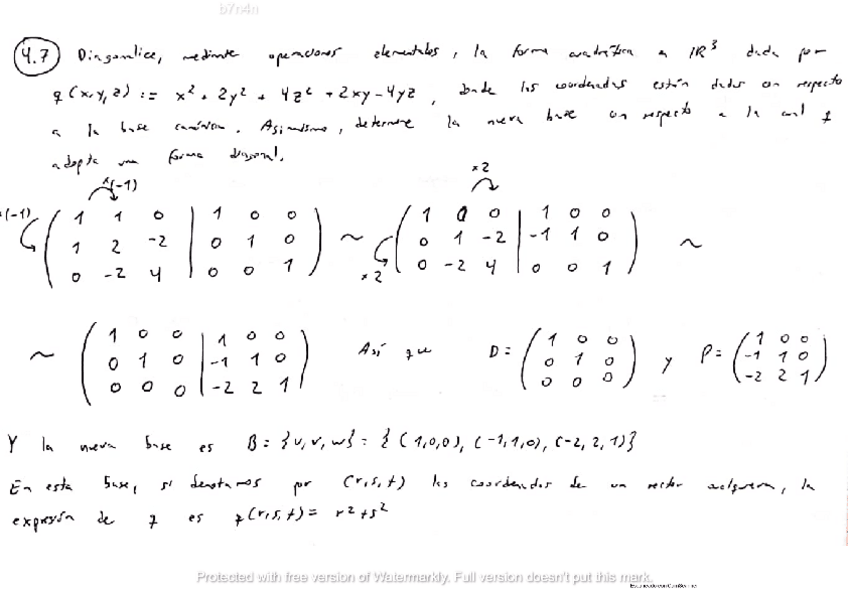 b7r4n
4.7 Diagonalice, mediante operaciones elementales, la forma cuadrática en IR³ dada por
q(x,y,z) := x² + 2y² + 4z² + 2xy - 4yz, donde las coordenadas están dadas con respecto
a la base canónica. Asimismo, determine la nueva base con respecto a la cual q
adopta una forma diagonal.
x(-1) x2
x(-1) ( 1 1 0 | 1 0 0 ) ~ ( 1 0 0 | 1 0 0 ) ~
( 1 2 -2 | 0 1 0 ) ( 0 1 -2 | -1 1 0 )
( 0 -2 4 | 0 0 1 ) x2 ( 0 -2 4 | 0 0 1 )
~ ( 1 0 0 | 1 0 0 ) Así que D = ( 1 0 0 ) y P = ( 1 0 0 )
( 0 1 0 | -1 1 0 ) ( 0 1 0 ) ( -1 1 0 )
( 0 0 0 | -2 2 1 ) ( 0 0 0 ) ( -2 2 1 )
Y la nueva base es B = {u, v, w} = {(1,0,0), (-1,1,0), (-2,2,1)}
En esta base, si denotamos por (r,s,t) las coordenadas de un vector cualquiera, la
expresión de q es q(r,s,t) = r² + s²
Protected with free version of Watermarkly. Full version doesn't put this mark.
Escaneado con CamScanner